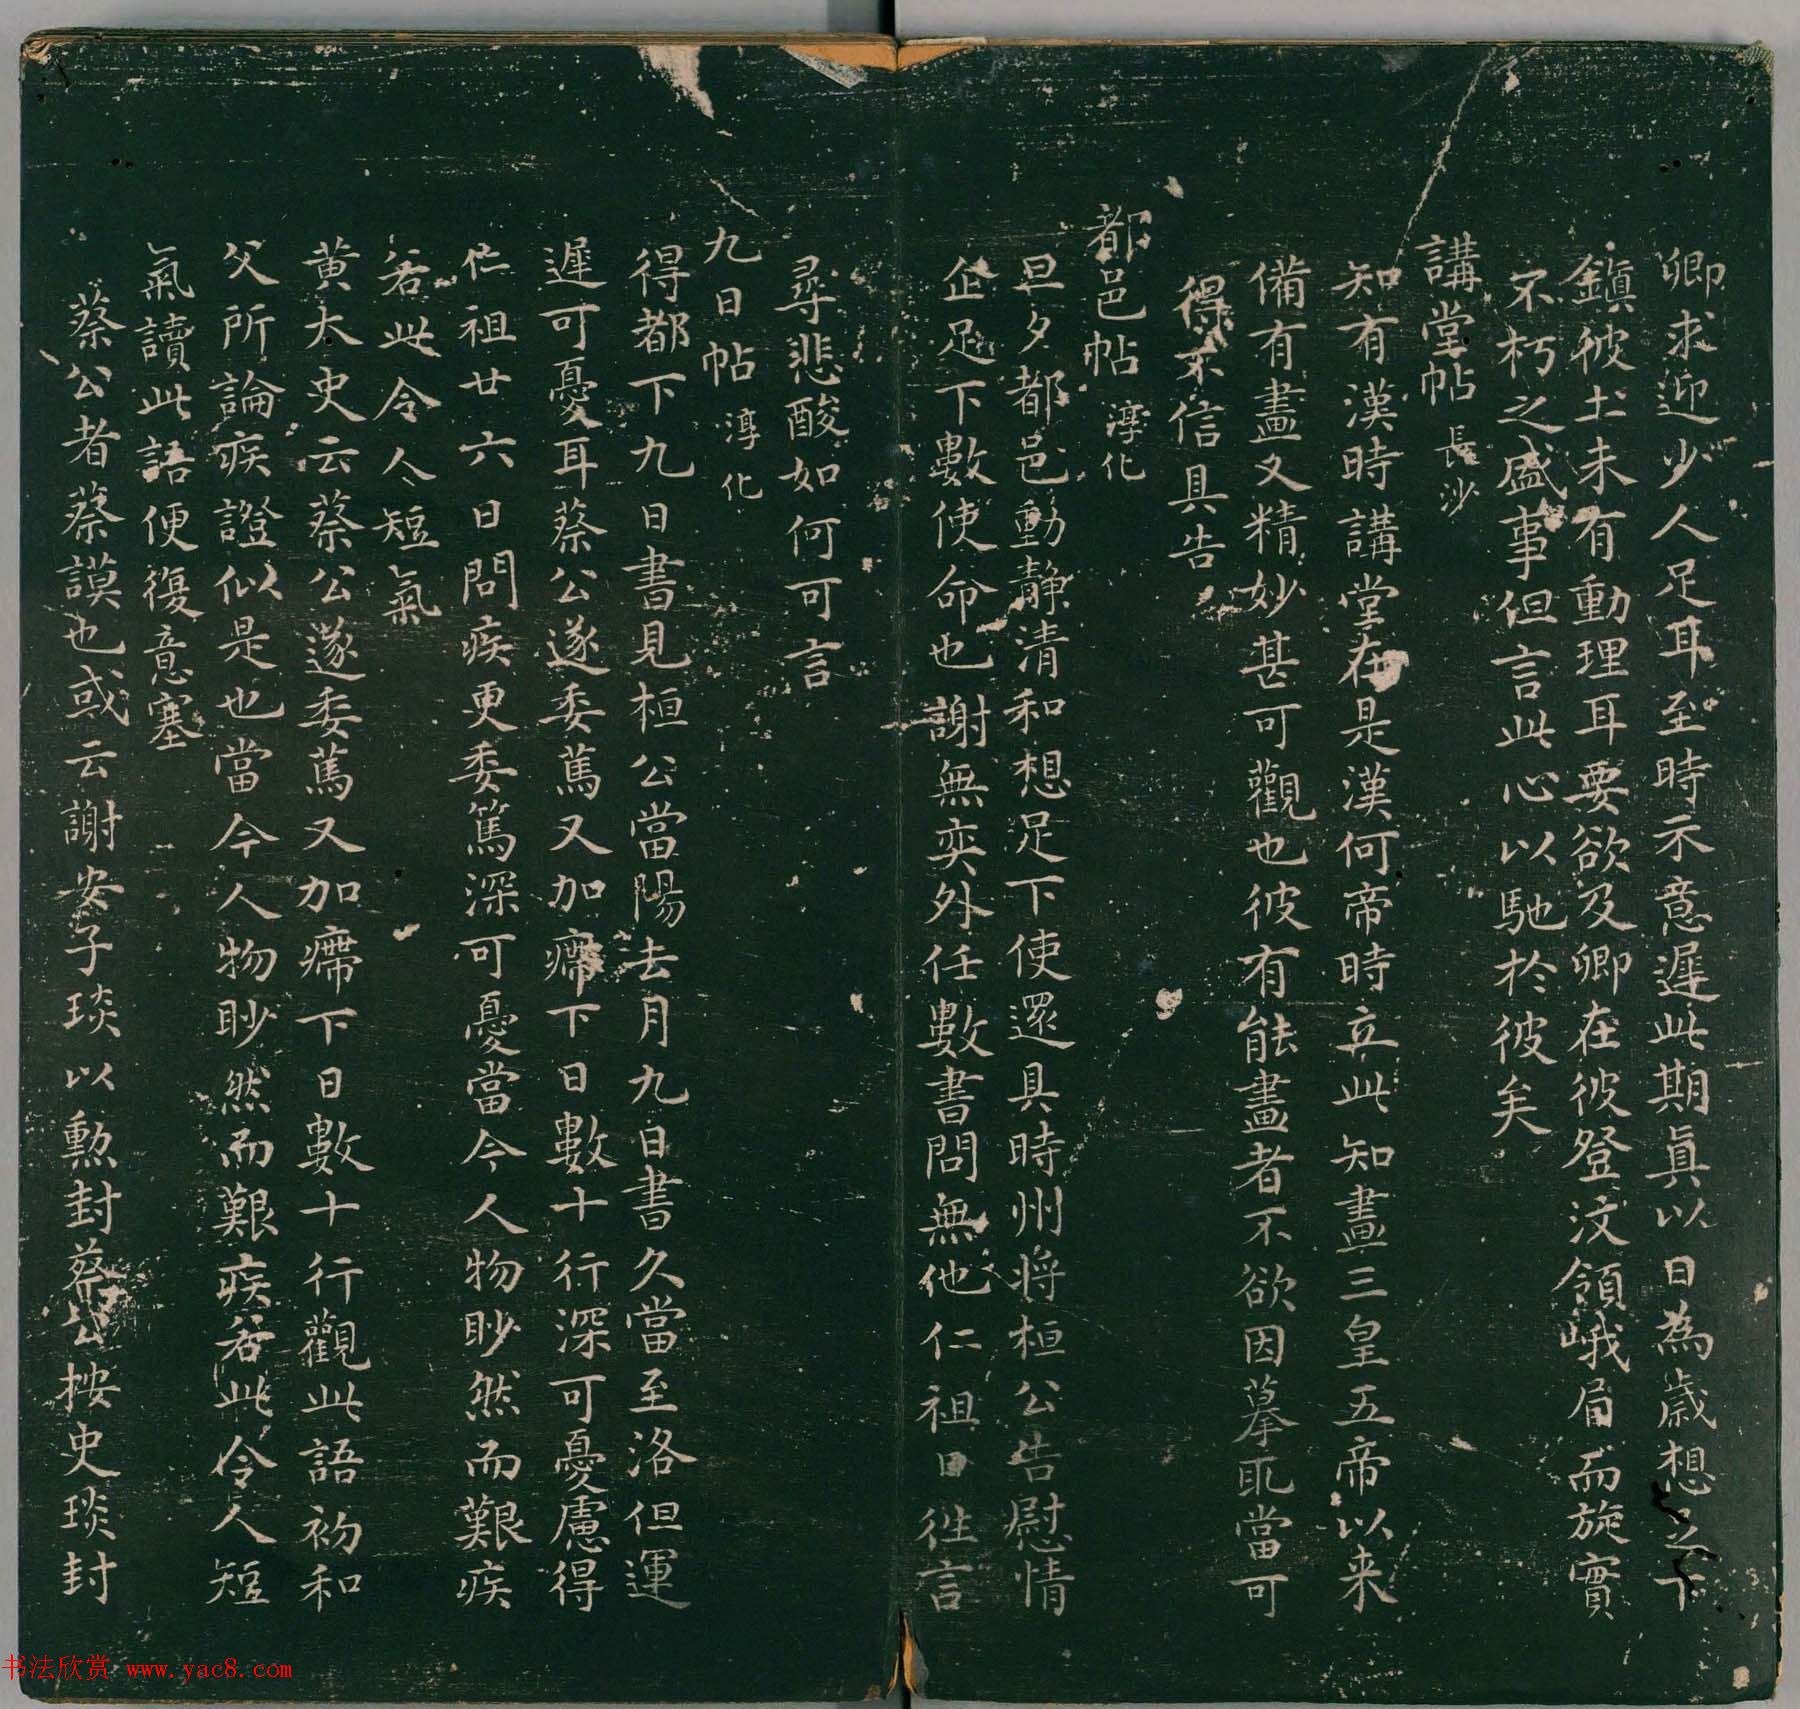 卿求迎少人足耳至時示意遲此期真以日為歲想足下
鎮彼土未有動理耳要欲及卿在彼登汶領峨眉而旋實
不朽之盛事但言此心以馳於彼矣
講堂帖 長沙
知有漢時講堂在是漢何帝時立此知畫三皇五帝以来
備有畫又精妙甚可觀也彼有能畫者不欲因摹取當可
得不信具告
都邑帖 淳化
旦夕都邑動靜清和想足下使還具時州將桓公告慰情
企足下數使命也謝無奕外任數書問無他仁祖日往言
尋悲酸如何可言
九日帖 淳化
得都下九日書見桓公當陽去月九日書久當至洛但運
遲可憂耳蔡公遂委篤又加㿃下日數十行深可憂慮得
仁祖廿六日問疾更委篤深可憂當今人物眇然而艱疾
若此令人短氣
黄太史云蔡公遂委篤又加㿃下日數十行觀此語初和
父所論疾證似是也當今人物眇然而艱疾若此令人短
氣讀此語便復意塞
蔡公者蔡謨也或云謝安子琰以勲封蔡公按史琰封
书法欣赏 www.yac8.com